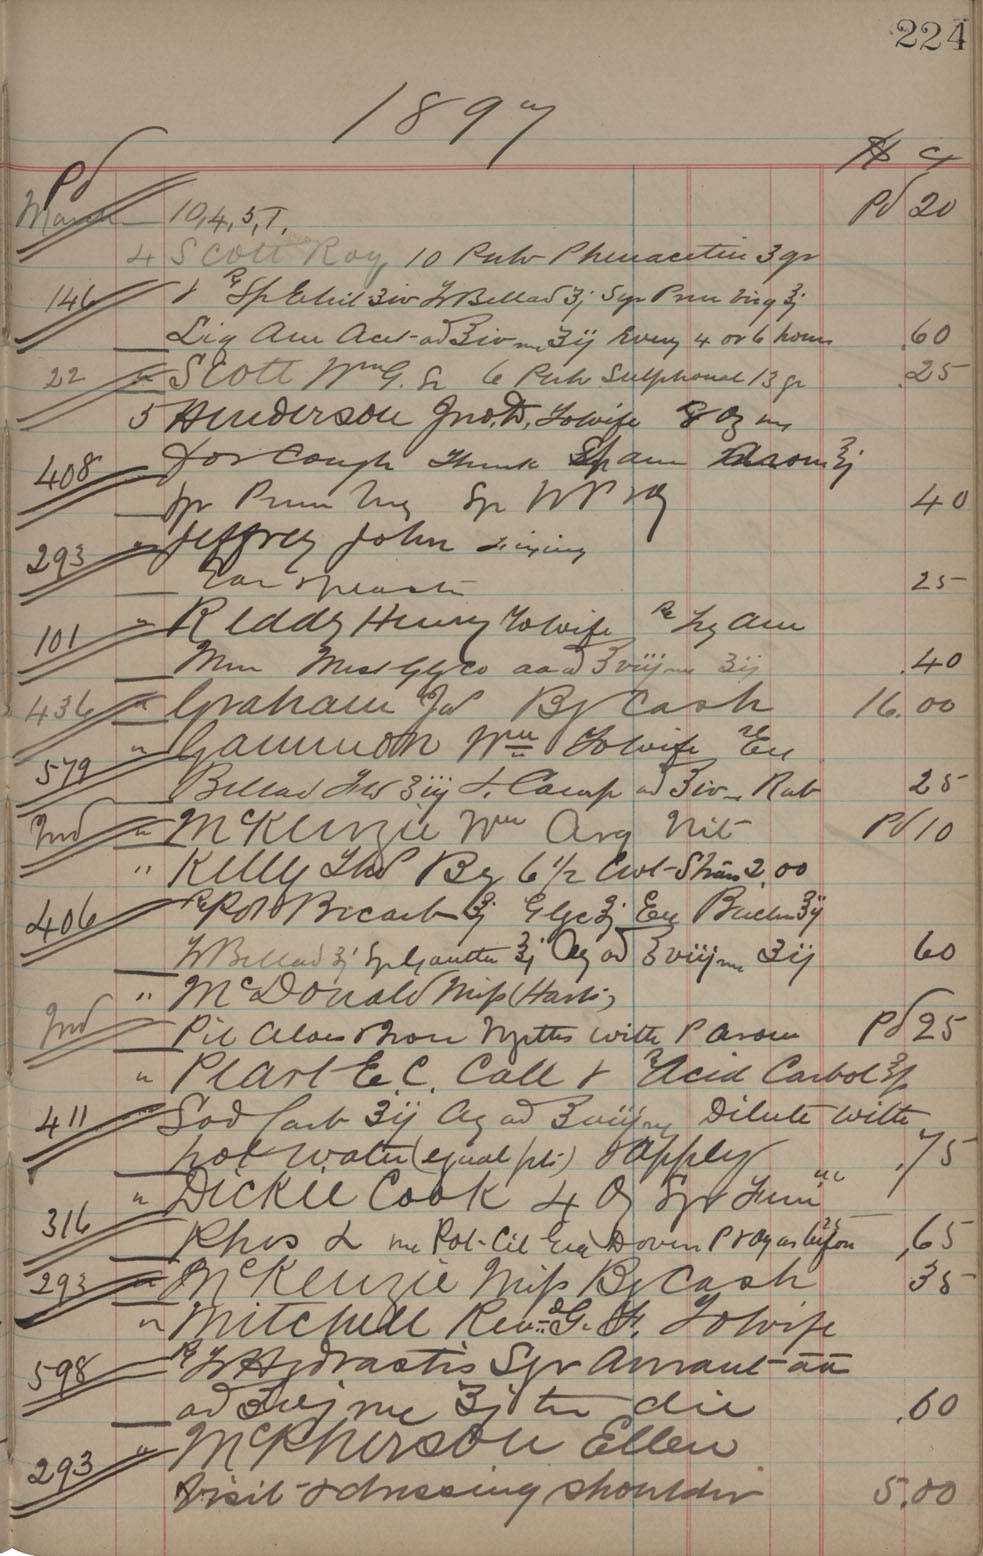 224
1897
Pd
March 10, 4, 5, T, Pd 20
4 Scott Roy 10 Pulv Phenacetin 3 gr
146 & ℞ Sp Ethil ʒiv Tr Bellad ʒj Syr Prun Virg ℥j
Liq Am Acet ad ℥iv ʒij Every 4 or 6 hours .60
22 " Scott Wm G. Sr 6 Pulv Sulphonal 13 gr .25
5 Henderson Jno. D. To wife 8 Oz
408 For Cough Am Arom ʒj
Syr Prun Virg 40
293 " Jeffrey John
25
101 " Reddy Henry To wife ℞ Am
Mur Mist Glyco aa ad ℥viij ʒij .40
436 " Graham By Cash 16.00
579 " Gammon Wm To wife
Bellad ʒiij Camp ad ℥iv Rub 25
Ind " McKenzie Wm Arg Nit Pd 10
" Kelly Thos By 6 1/2 Cwt Straw 2.00
406 ℞ Pot Bicarb ℥j Glyc ℥j Buchu ℥ij
Tr Bellad ʒj ℥j Aq ad ℥viij ʒij 60
" McDonald Miss (Harts)
Ind Pil Aloes & Iron with P arom Pd 25
" Plant E. C. Call & ℞ Acid Carbol
411 Sod Carb ʒij Aq ad ℥viij Dilute with
hot water (equal pts) & apply .75
" Dickie Cook 4 Oz Syr
316 Phos & Pot Cit Dovers P .65
293 " McKenzie Miss By Cash 35
" Mitchell Revd G. F. To wife
598 ℞ Tr Hydrastis Syr Aurant aa
ad ʒj ter die .60
293 " McPherson Ellen
Visit & dressing shoulder 5.00